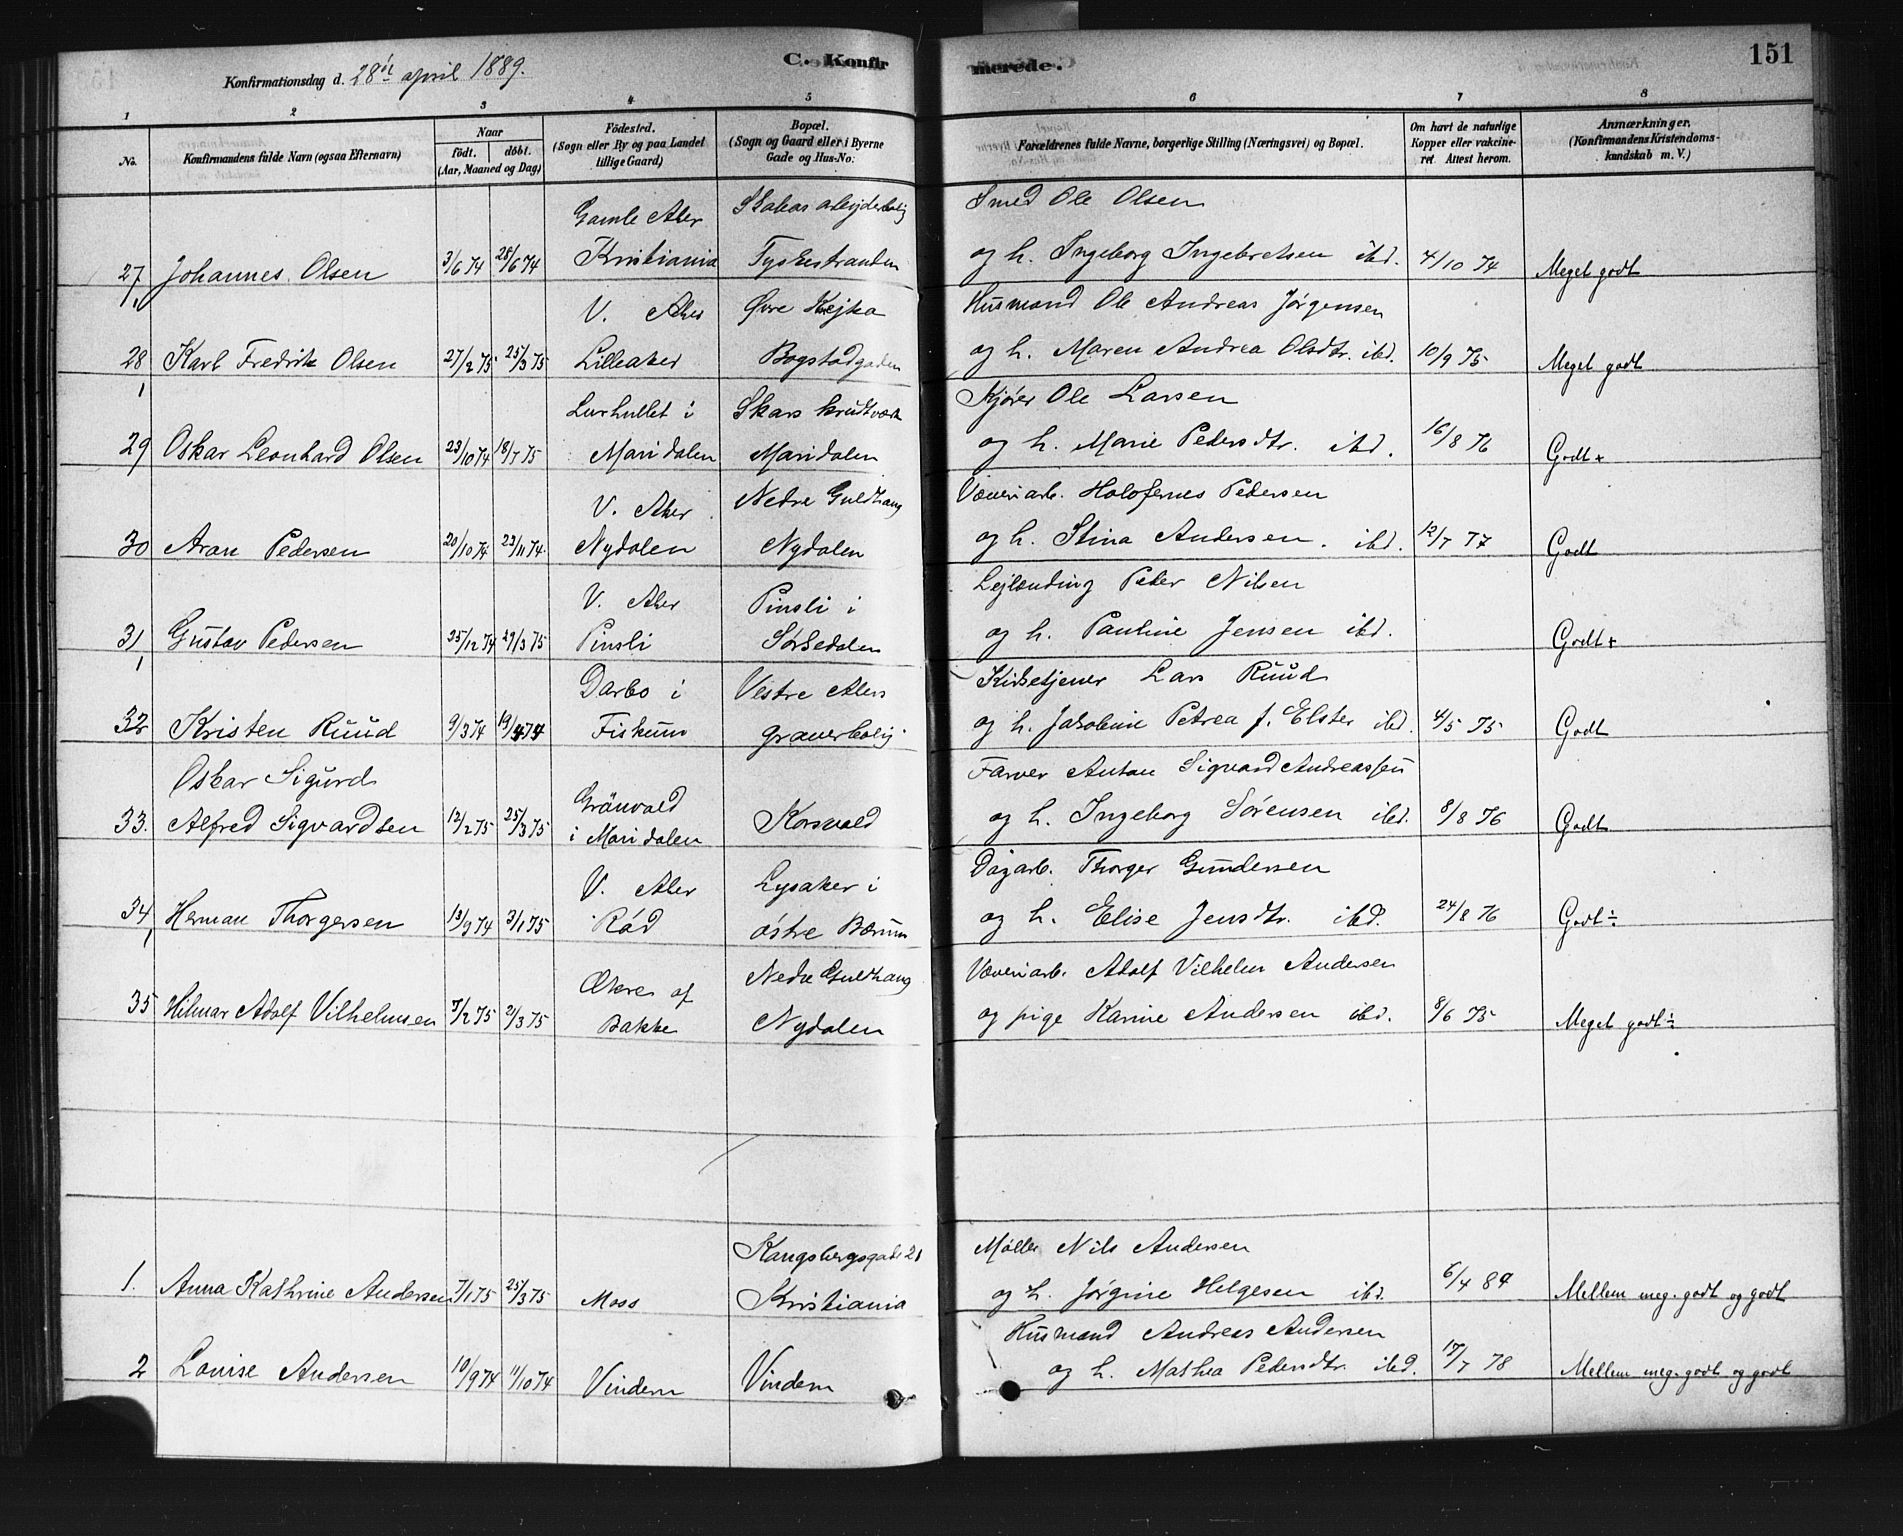 Konfirmationsdag d. 28de april 1889.
C. Konfirmerede.
151
1 2 3 4 5 6 7 8
No.
Konfirmandens fulde Navn (ogsaa Efternavn)
Naar
født. døbt.
(Aar, Maaned og Dag)
Fødested.
(Sogn eller By og paa Landet
tillige Gaard)
Bopæl.
(Sogn og Gaard eller i Byerne
Gade og Hus-No.
Forældrenes fulde Navne, borgerlige Stilling (Næringsvei) og Bopæl.
Om havt de naturlige
Kopper eller vakcine-
ret. Attest herom.
Anmærkninger.
(Konfirmandens Kristendoms-
kundskab m. V.)
Gamle Aker
Smed Ole Olsen
27 Johannes Olsen 3/6 74 28/6 74 Kristiania Tyskestranden og h. Ingeborg Ingebretsen ibd. 4/10 74 Meget godt
V. Aker Øvre
Husmand Ole Andreas Jørgensen
28 Karl Fredrik Olsen 27/2 75 25/3 75 Lilleaker Bogstadgaden og h. Maren Andrea Olsdtr. ibd. 10/9 75 Meget godt
Lurhullet i Skars krudtværk
Kjører Ole Larsen
29 Oskar Leonhard Olsen 23/10 74 18/7 75 Maridalen Maridalen og h. Marie Pedersdtr. ibd. 16/8 76 Godt+
V. Aker Nedre Guldhaug
Væveriarb. Holofernes Pedersen
30 Aron Pedersen 20/10 74 23/11 74 Nydalen Nydalen og h. Stina Andersen. ibd. 12/7 77 Godt
V. Aker Pinsli i
Lejlænding Peder Nilsen
31 Gustav Pedersen 25/12 74 29/3 75 Pinsli Sørkedalen og h. Pauline Jensen ibd. Godt+
Darbo i Vestre Akers
Kirketjener Lars Ruud
32 Kristen Ruud 9/3 74 19/4 74 Fiskum graverbolig og h. Jakobine Petrea f. Elster ibd. 4/5 75 Godt
Oskar Sigurd
Farver Anton Sigvard Andreassen
33. Alfred Sigvardsen 12/2 75 25/3 75 Grönvold i Maridalen Korsvold og h. Ingeborg Sørensen ibd. 8/8 76 Godt
V. Aker Lysaker i
Dagarb. Thorger Gundersen
34 Herman Thorgersen 13/9 74 3/1 75 Rød østre Bærum og h. Elise Jensdtr. ibd. 24/8 76 Godt÷
af Nedre Guldhaug
Væveriarb. Adolf Vilhelm Andersen
35 Hilmar Adolf Vilhelmsen 7/2 75 21/3 75 Bakke Nydalen og pige Karine Andersen ibd. 8/6 75 Meget godt÷
Kongsbergsgade 21
Møller Nils Andersen
1. Anna Kathrine Andersen 7/1 75 25/3 75 Moss Kristiania og h. Jørgine Helgesen ibd. 6/4 84 Mellem meg. godt og godt
Husmand Andreas Andersen
2 Louise Andersen 10/9 74 11/10 74 Vindern Vindern og h. Mathea Pedersdtr. ibd. 17/7 78 Mellem meg. godt og godt